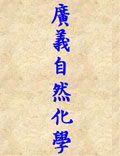 廣義自然化學